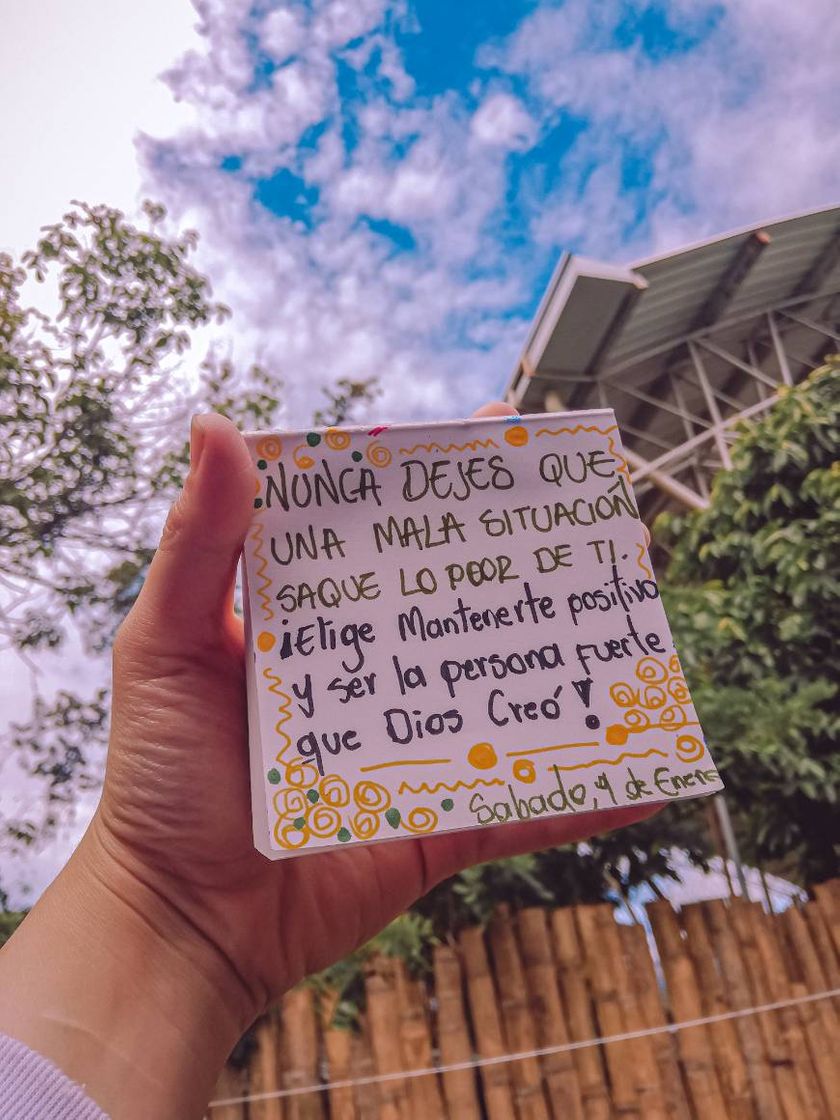 NUNCA DEJES QUE
UNA MALA SITUACIÓN
SAQUE LO PEOR DE TI.
¡Elige Mantenerte positivo
y ser la persona fuerte
que Dios Creó!
Sabado, 4 de Enero